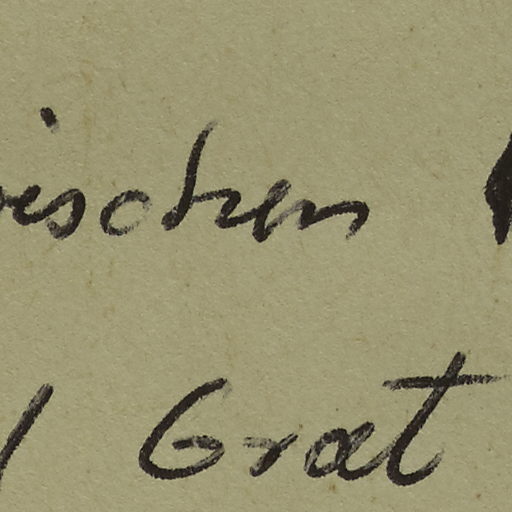 ischen
Grat